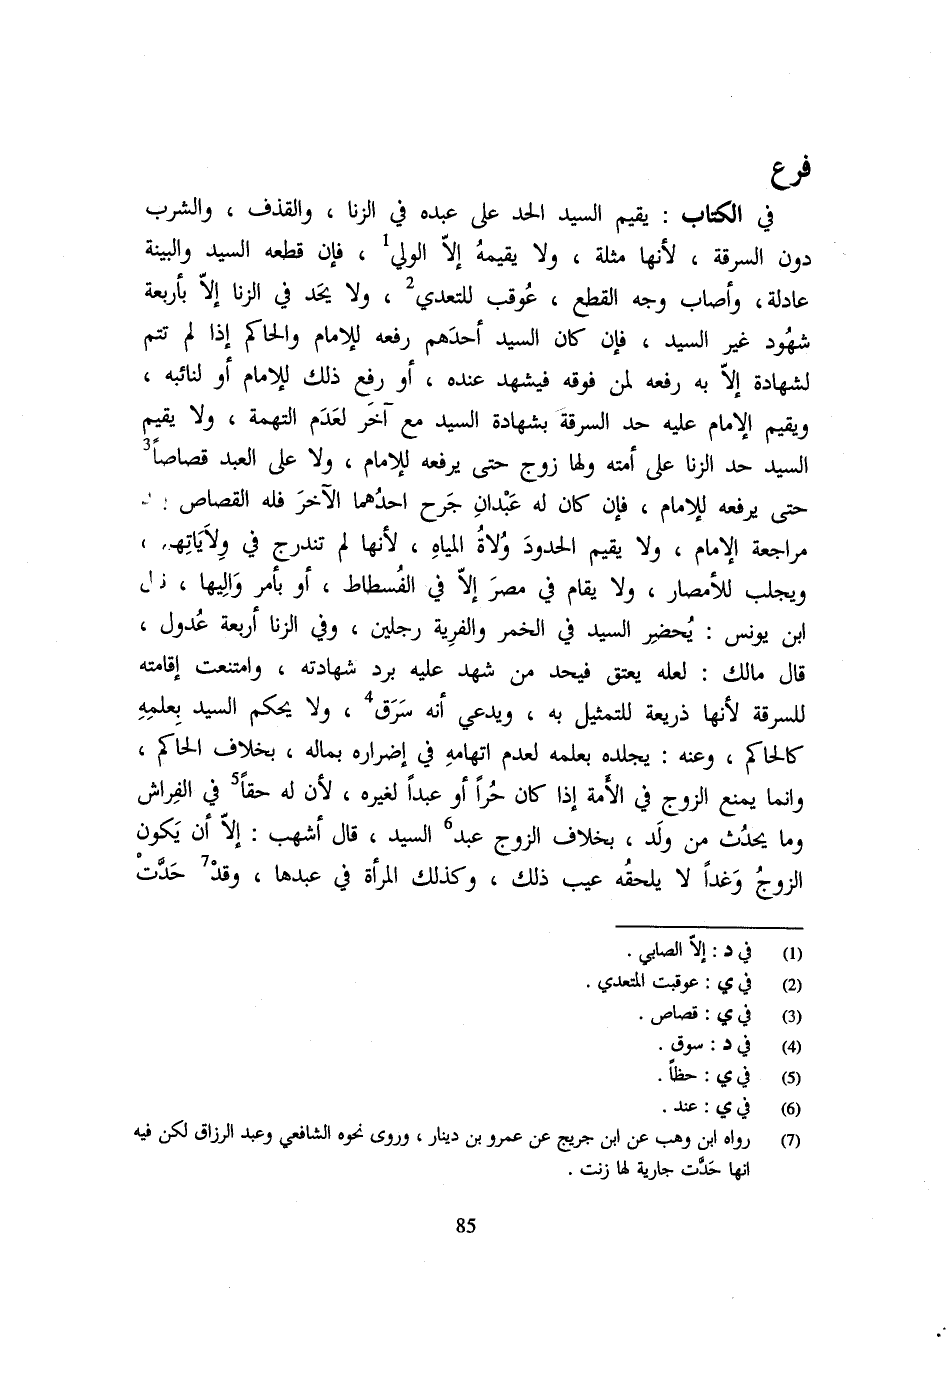 فرع
في الكتاب : يقيم السيد الحد على عبده في الزنا ، والقذف ، والشرب
دون السرقة ، لأنها مثلة ، ولا يقيمهُ إلاّ الولي1 ، فإن قطعه السيد والبينة
عادلة ، وأصاب وجه القطع ، عُوقب للتعدي2 ، ولا يحَد في الزنا إلاّ بأربعة
شهُود غير السيد ، فإن كان السيد أحدَهم رفعه للإمام والحاكم إذا لم تتم
لشهادة إلاّ به رفعه لمن فوقه فيشهد عنده ، أو رفع ذلك للإمام أو لنائبه ،
ويقيم الإمام عليه حد السرقة بشهادة السيد مع آخَر لعَدَم التهمة ، ولا يقيم
السيد حد الزنا على أمته ولها زوج حتى يرفعه للإمام ، ولا على العبد قصاصاً3
حتى يرفعه للإمام ، فإن كان له عَبْدانِ جَرح احدُهما الآخرَ فله القصاص
مراجعة الإمام ، ولا يقيم الحدودَ وُلاةُ المياهِ ، لأنها لم تندرج في ولاَيَاتِهـ ،
ويجلب للأمصار ، ولا يقام في مصرَ إلاّ في الفُسطاط ، أو بأمر وَاليها ،
ابن يونس : يُحضِر السيد في الخمر والفرية رجلين ، وفي الزنا أربعة عُدول ،
قال مالك : لعله يعتق فيحد من شهد عليه برد شهادته ، وامتنعت إقامته
للسرقة لأنها ذريعة للتمثيل به ، ويدعي أنه سَرَق4 ، ولا يحكم السيد بِعلمِهِ
كالحاكم ، وعنه : يجلده بعلمه لعدم اتهامهِ في إضراره بماله ، بخلاف الحاكم ،
وانما يمنع الزوج في الأَمة إذا كان حُراً أو عبداً لغيره ، لأن له حقاً5 في الفِراش
وما يحدُث من ولَد ، بخلاف الزوج عبد6 السيد ، قال أشهب : إلاّ أن يَكون
الزوجُ وَغداً لا يلحقُه عيب ذلك ، وكذلك المرأة في عبدها ، وقدْ7 حَدَّتْ
(1) في د : إلاّ الصابي .
(2) في ي : عوقبت المتعدي .
(3) في ي : قصاص .
(4) في د : سوق .
(5) في ي : حظاً .
(6) في ي : عند .
(7) رواه ابن وهب عن ابن جريج عن عمرو بن دينار ، وروى نحوه الشافعي وعبد الرزاق لكن فيه
انها حَدَّت جارية لها زنت .
85